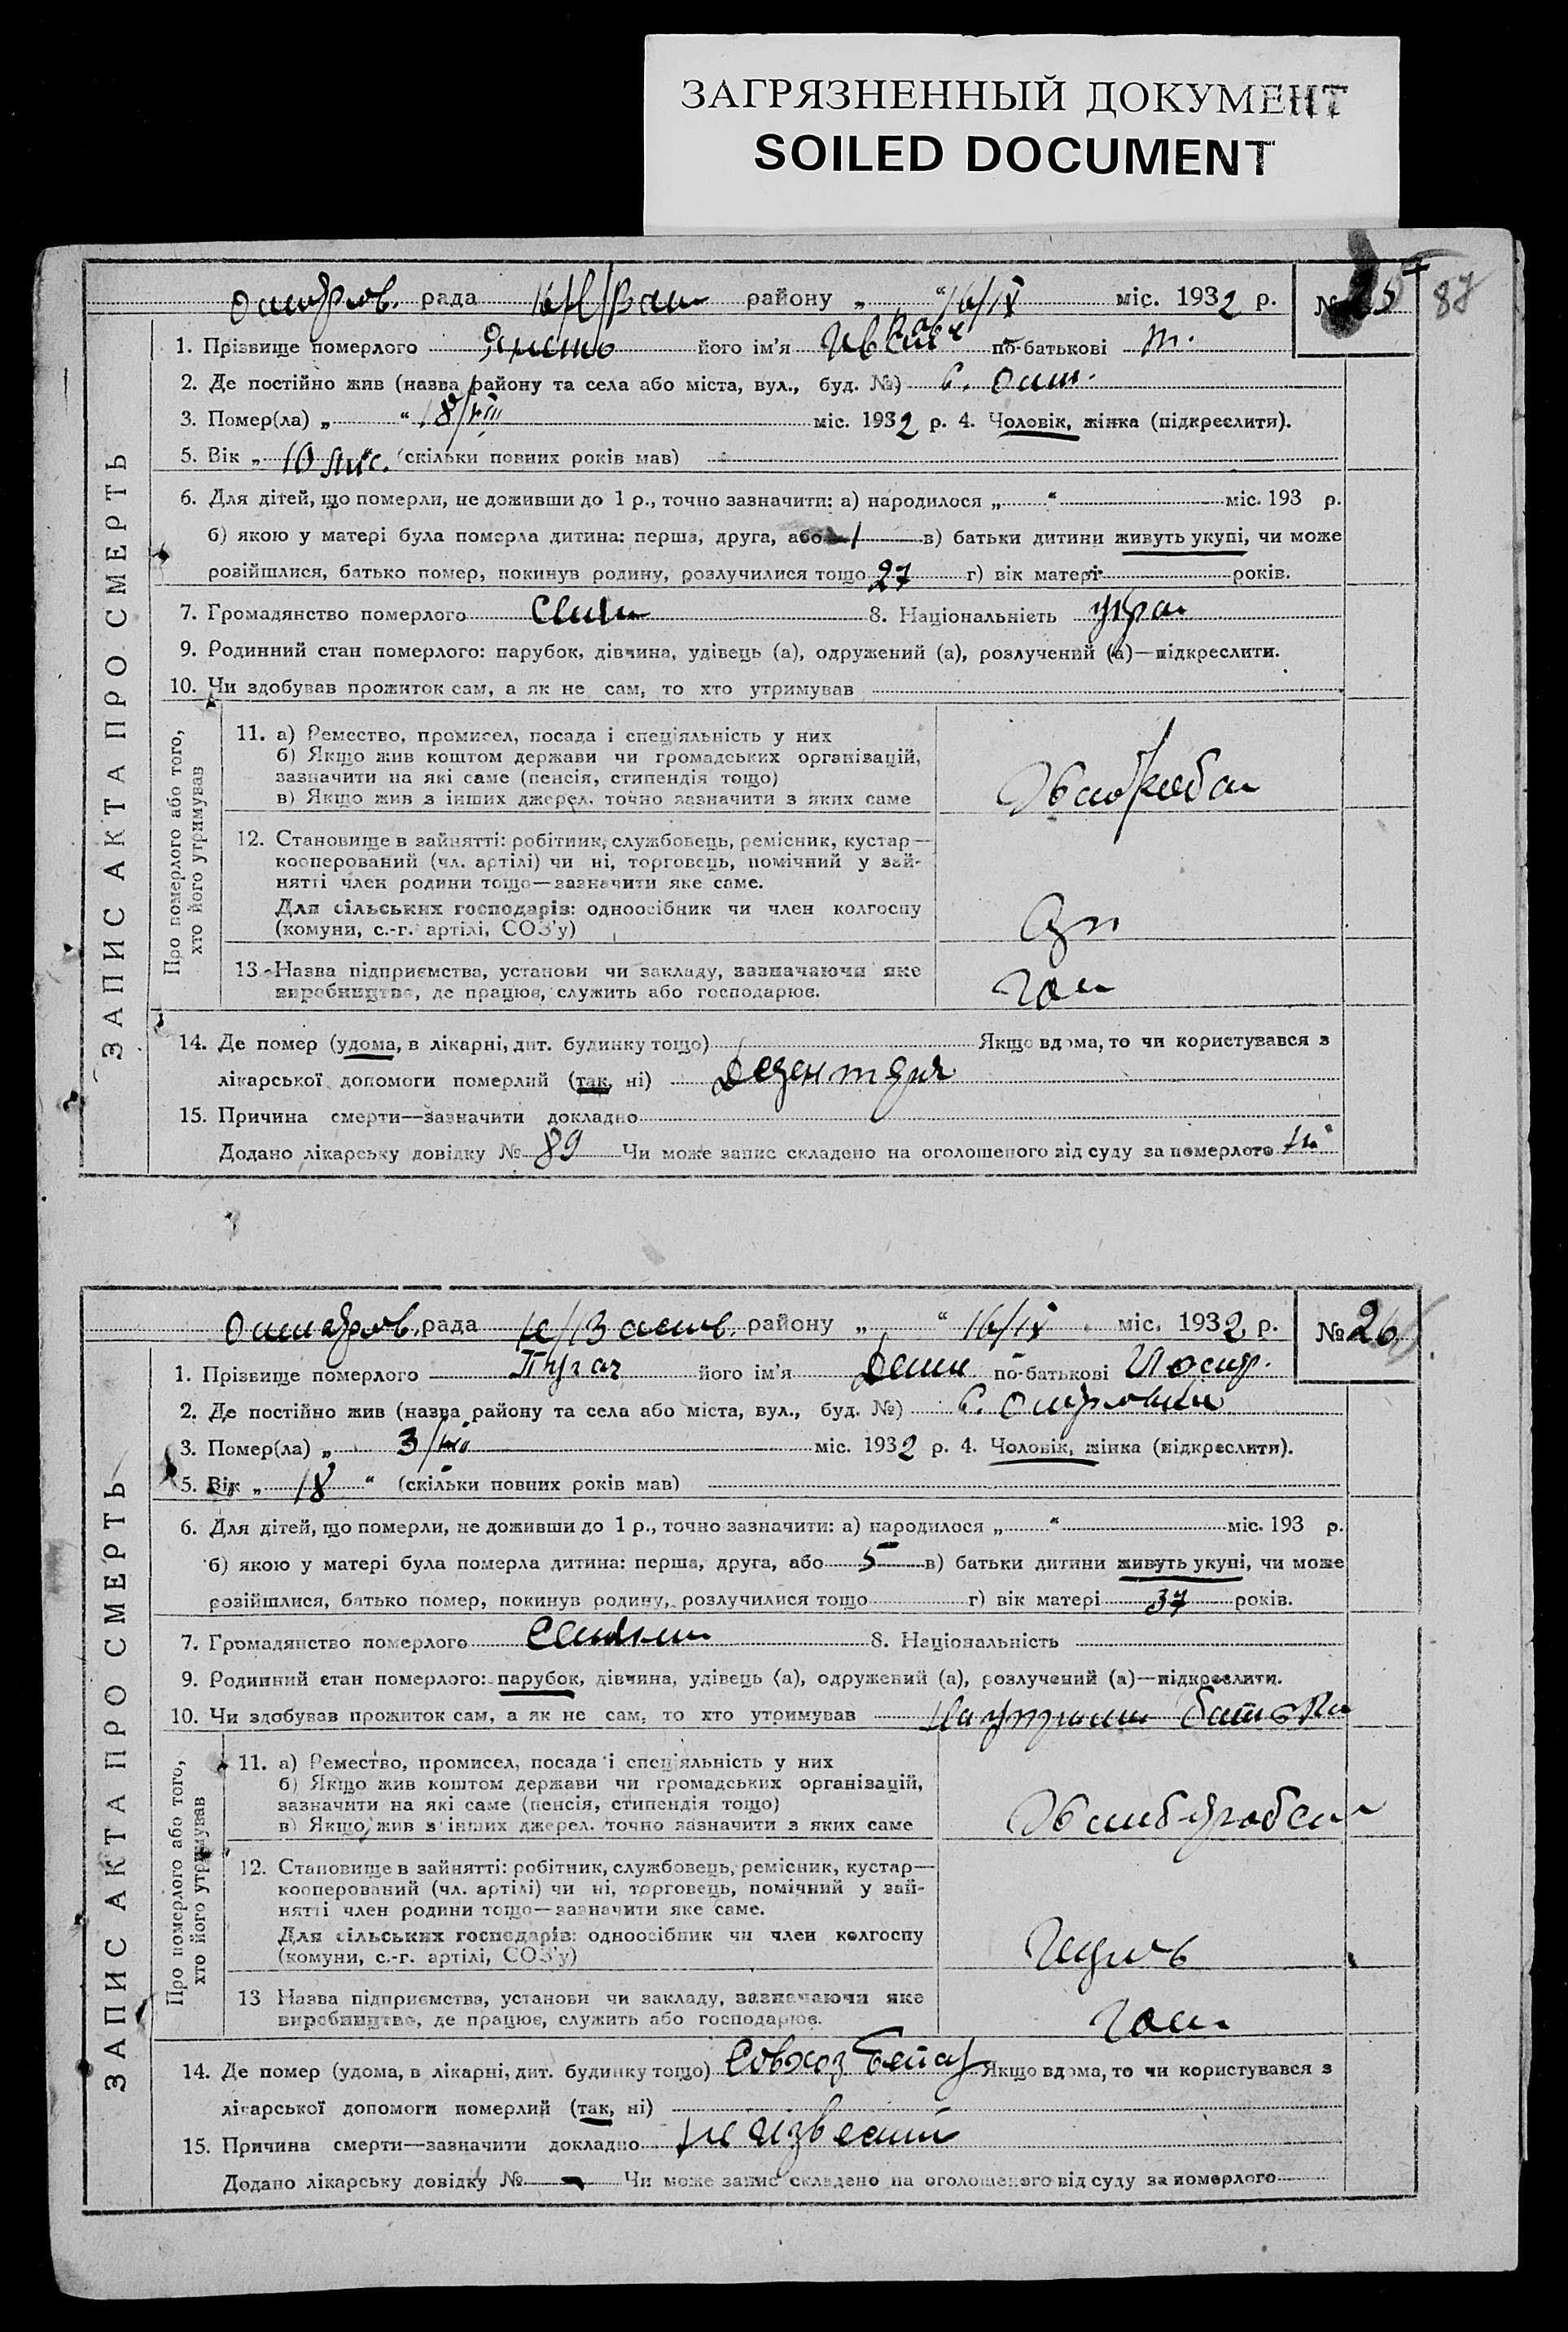 ЗАГРЯЗНЕННЫЙ ДОКУМЕНТ
SOILED DOCUMENT
87
рада району „ “ 16/IX міс. 1932 р. № 25
1. Прізвище померлого його ім'я по-батькові
2. Де постійно жив (назва району та села або міста, вул., буд. №) с.
3. Помер(ла) „ “ 18/VIII міс. 1932 р. 4. Чоловік, жінка (підкреслити).
5. Вік „ 10 міс. (скільки повних років мав)
6. Для дітей, що померли, не доживши до 1 р., точно зазначити: а) народилося „ “ міс. 193 р.
б) якою у матері була померла дитина: перша, друга, або 1 в) батьки дитини живуть укупі, чи може
розійшлися, батько помер, покинув родину, розлучилися тощо 27 г) вік матері років.
7. Громадянство померлого 8. Національність укра
9. Родинний стан померлого: парубок, дівчина, удівець (а), одружений (а), розлучений (а)—підкреслити.
10. Чи здобував прожиток сам, а як не сам, то хто утримував
ЗАПИС АКТА ПРО СМЕРТЬ
Про померлого або того, хто його утримував
11. а) Ремество, промисел, посада і спеціяльність у них
б) Якщо жив коштом держави чи громадських організацій,
зазначити на які саме (пенсія, стипендія тощо)
в) Якщо жив з інших джерел. точно зазначити з яких саме
12. Становище в зайнятті: робітник, службовець, ремісник, кустар—
кооперований (чл. артілі) чи ні, торговець, помічний у зай-
нятті член родини тощо—зазначити яке саме.
Для сільських господарів: одноосібник чи член колгоспу
(комуни, с.-г. артілі, СОЗ'у)
13. Назва підприємства, установи чи закладу, зазначаючи яке
виробництво, де працює, служить або господарює.
14. Де помер (удома, в лікарні, дит. будинку тощо) Якщо вдома, то чи користувався з
лікарської допомоги померлий (так, ні) Дезентерия
15. Причина смерти—зазначити докладно
Додано лікарську довідку № 89 Чи може запис складено на оголошеного від суду за померлого
рада району „ “ 16/IX міс. 1932 р. № 26
1. Прізвище померлого Пугач його ім'я по-батькові Йосип.
2. Де постійно жив (назва району та села або міста, вул., буд. №) с.
3. Помер(ла) „ 3/VIII міс. 1932 р. 4. Чоловік, жінка (підкреслити).
5. Вік „ 18 “ (скільки повних років мав)
6. Для дітей, що померли, не доживши до 1 р., точно зазначити: а) народилося „ “ міс. 193 р.
б) якою у матері була померла дитина: перша, друга, або 5 в) батьки дитини живуть укупі, чи може
розійшлися, батько помер, покинув родину, розлучилися тощо г) вік матері 37 років.
7. Громадянство померлого 8. Національність
9. Родинний стан померлого: парубок, дівчина, удівець (а), одружений (а), розлучений (а)—підкреслити.
10. Чи здобував прожиток сам, а як не сам, то хто утримував батька
ЗАПИС АКТА ПРО СМЕРТЬ
Про померлого або того, хто його утримував
11. а) Ремество, промисел, посада і спеціяльність у них
б) Якщо жив коштом держави чи громадських організацій,
зазначити на які саме (пенсія, стипендія тощо)
в) Якщо жив з інших джерел. точно зазначити з яких саме
12. Становище в зайнятті: робітник, службовець, ремісник, кустар—
кооперований (чл. артілі) чи ні, торговець, помічний у зай-
нятті член родини тощо—зазначити яке саме.
Для сільських господарів: одноосібник чи член колгоспу
(комуни, с.-г. артілі, СОЗ'у)
13 Назва підприємства, установи чи закладу, зазначаючи яке
виробництво, де працює, служить або господарює.
14. Де помер (удома, в лікарні, дит. будинку тощо) Совхоз Якщо вдома, то чи користувався з
лікарської допомоги померлий (так, ні)
15. Причина смерти—зазначити докладно
Додано лікарську довідку № - Чи може запис складено на оголошеного від суду за померлого